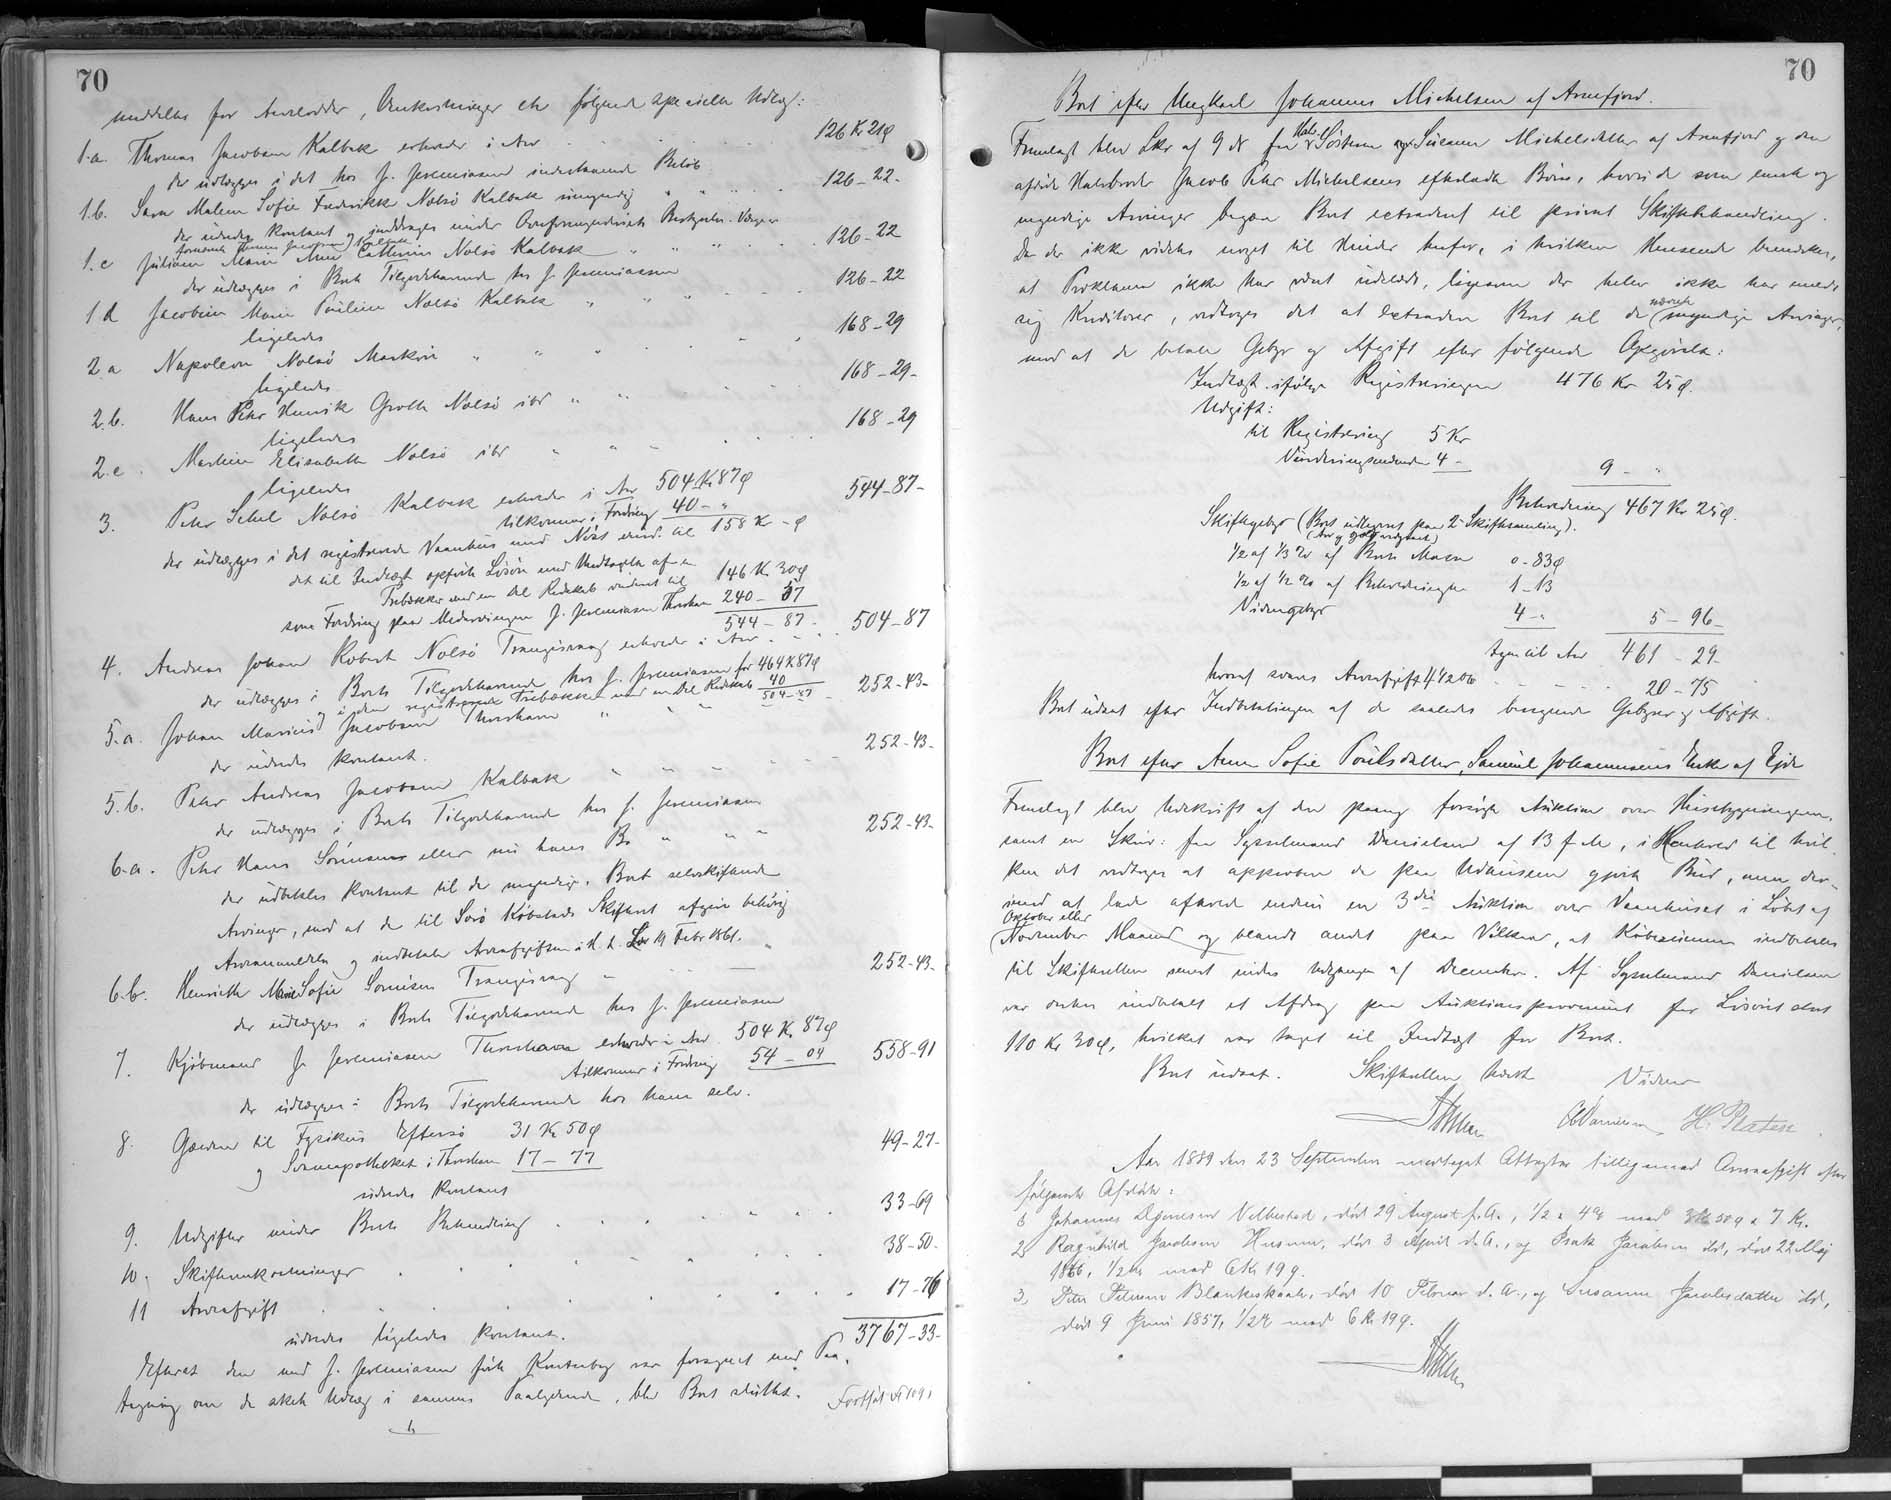 70
meddeles for Arvelodder, Omkostninger etc følgende specielle Udlæg:
1.a. Thomas Jacobsen Kalbak erholder i Arv 126 Kr 21 ø
der udlægges i det hos J. Jeremiasen indestaaende Beløb
1.b. Sara Malene Sofie Fredrikke Nolsø Kalbak umyndig " " 126-22-
der udredes kontant og inddrages under Overformynderiets Bestyrelse. Værgen
formentl Thomas Jacobsen Kalbak
1.c Juliane Marie Anna Cathrine Nolsø Kalbak " " " 126-22
der udlægges i Boets Tilgodehavende hos J. Jeremiasen
1.d Jacobine Marie Pouline Nolsø Kalbak " " " 126-22
ligeledes
2.a Napoleon Nolsø Maskin " " " 168-29
ligeledes
2.b. Hans Peter Henrik Groth Nolsø ibd " " 168-29-
ligeledes
2.c. Marline Elisabeth Nolsø ibd " " 168-29
ligeledes
3. Peter Sekel Nolsø Kalbak erholder i Arv 504 Kr 87 ø
tilkommer i Fordring 40 - " 544-87-
der udlægges i det registrerede Vaanhus med Nøst vurd. til 158 Kr - ø
det til Indtægt opførte Løsøre med Undtagelse af en
Trebækker med en Del Redskab vurderet til 146 Kr. 30 ø
som Fordring paa Medarvingen J. Jeremiasen Thorshavn 240 - 57
544-87-
4. Andreas Johan Robert Nolsø Trangisvaag erholder i Arv 504-87
der udlægges i Boets Tilgodehavende hos J. Jeremiasen for 464 K 87 ø
og i den registrerede Trebækker med en Del Redskab 40
504-87
5.a. Johan Marius Jacobsen Thorshavn " " " 252-43-
der udredes kontant.
5.b. Peter Andreas Jacobsen Kalbak " " " 252-43-
der udlægges i Boets Tilgodehavende hos J. Jeremiasen
6.a. Peter Hans Sørensen eller nu hans Bo " " " 252-43-
der udbetales kontant til de myndige, Boet selvskiftende
Arvinger, mod at de til Sorø Købstads Skifteret afgive behørig
Arveanmeldelse og indbetale Arveafgiften i H. t. Lov 19 Febr 1861.
6.b. Henriette Marie Sofie Sørensen Trangisvaag " 252-43-
der udlægges i Boets Tilgodehavende hos J. Jeremiasen
7. Kjøbmand J. Jeremiasen Thorshavn erholder i Arv 504 Kr. 87 ø
tilkommer i Fordring 54 - 04 558-91
der udlægges i Boets Tilgodehavende hos ham selv.
8. Gælden til Fysikus Eftersø 31 Kr 50 ø
og Svaneapotheket i Thorshavn 17 - 77 49-27-
udredes kontant
9. Udgifter under Boets Behandling 33-69
10. Skifteomkostninger 38-50-
11 Arveafgift 17-76
udredes ligeledes kontant. 3767-33-
Efterat den med J. Jeremiasen førte Kontrabog var forsynet med Paa-
tegning om de skete Udlæg i sammes Paalydende, blev Boet sluttet.
Fortsat
70
Boet efter Ungkarl Johannes Michelsen af Arnefjord.
Fremlagt blev Skr af 9 ds fra Halv Søsteren Susanne Michelsdatter af Arnefjord og den
afdøde Halvbroder Jacob Peter Michelsens efterladte Børn, hvori de som eneste og
myndige Arvinger begære Boet extraderet til privat Skiftebehandling.
Da der ikke vidstes noget til Hinder herfor, i hvilken Henseende bemærkes,
at Proklama ikke har været udstedt, ligesom der heller ikke har meldt
sig Kreditorer, vedtoges det at extradere Boet til de nævnte myndige Arvinger,
mod at de betale Gebyr og Afgift efter følgende Opgørelse:
Indtægt ifølge Registreringen 476 Kr 25 ø.
Udgift:
til Registrering 5 Kr
Vurderingsmændene 4 - 9 - "
Beholdning 467 Kr 25 ø.
Skiftegebyr (Boet udleveret paa 2 Skiftesamling).
½ af ⅓ % af Boets Masse 0-83 ø
½ af ½ % af Beholdningen 1-13
Vidnegebyr 4 - " 5-96-
Igen til Arv 461-29-
hvoraf svares Arveafgift 4½ % 20-75
Boet udsat efter Indbetalingen af de saaledes beregnede Gebyrer og Afgift.
Boet efter Anne Sofie Poulsdatter, Samuel Johannesens Enke af Ejde
Fremlagt blev Udskrift af den paany forsøgte Auktion over Husebygningen,
samt en Skriv: fra Sysselmand Danielsen af 13 f M, i Henhold til hvil-
ken det vedtoges at approbere de paa Udhusene gjorte Bud, men der-
imod at lade afholde endnu en 3die Auktion over Vaanhuset i Løbet af
Oktober eller
November Maaned og blandt andet paa Vilkaar, at Købesummen indbetales
til Skifteretten senest inden Udgangen af December. Af Sysselmand Danielsen
var endvidere indbetalt et Afdrag paa Auktionsprovenuet for Løsøret stort
110 Kr 30 ø, hvilket var taget til Indtægt for Boet.
Boet udsat. Skifteretten hævet Vidner
Aar 1889 den 23 September modtaget Attester tilligemed Arveafgift efter
følgende Afdøde:
1, Johannes Djonesen Velbestad, død 29 August f. A., ½ a 4 % med 3 Kr 50 ø a 7 Kr.
2, Ragnhild Jacobsen Husum, død 3 April d. A., og Isak Jacobsen ibd, død 22 Maj
1866, ½ % med 6 Kr 19 ø.
3, Peter Petersen Blankeskaale, død 10 Februar d. A., og Susanne Jacobsdatter ibd,
død 9 Juni 1857, ½ % med 6 Kr 19 ø.